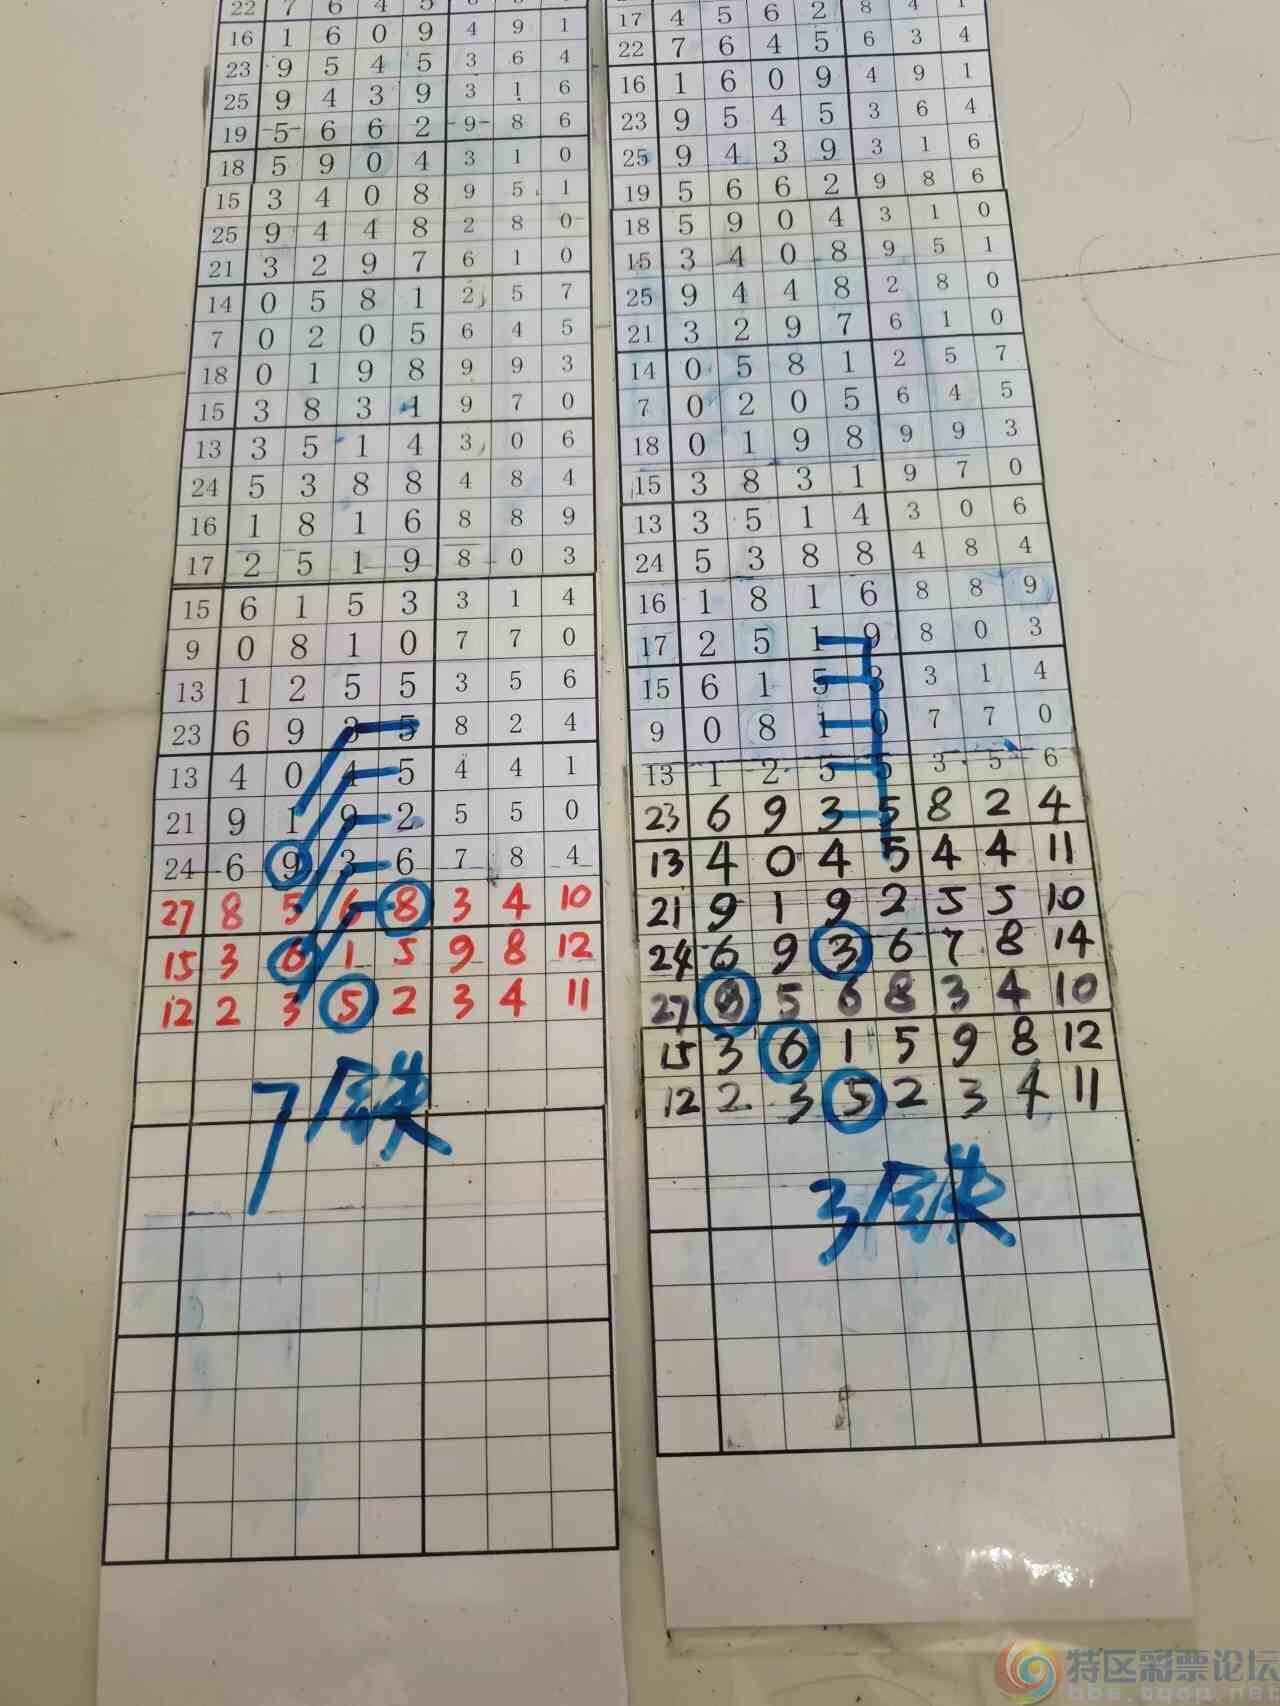 22 7 6 4 5
16 1 6 0 9 4 9 1
23 9 5 4 5 3 6 4
25 9 4 3 9 3 1 6
19 5 6 6 2 9 8 6
18 5 9 0 4 3 1 0
15 3 4 0 8 9 5 1
25 9 4 4 8 2 8 0
21 3 2 9 7 6 1 0
14 0 5 8 1 2 5 7
7 0 2 0 5 6 4 5
18 0 1 9 8 9 9 3
15 3 8 3 1 9 7 0
13 3 5 1 4 3 0 6
24 5 3 8 8 4 8 4
16 1 8 1 6 8 8 9
17 2 5 1 9 8 0 3
15 6 1 5 3 3 1 4
9 0 8 1 0 7 7 0
13 1 2 5 5 3 5 6
23 6 9 3 5 8 2 4
13 4 0 4 5 4 4 1
21 9 1 9 2 5 5 0
24 6 9 3 6 7 8 4
27 8 5 6 8 3 4 10
15 3 6 1 5 9 8 12
12 2 3 5 2 3 4 11
7
17 4 5 6 2 8 4 1
22 7 6 4 5 6 3 4
16 1 6 0 9 4 9 1
23 9 5 4 5 3 6 4
25 9 4 3 9 3 1 6
19 5 6 6 2 9 8 6
18 5 9 0 4 3 1 0
15 3 4 0 8 9 5 1
25 9 4 4 8 2 8 0
21 3 2 9 7 6 1 0
14 0 5 8 1 2 5 7
7 0 2 0 5 6 4 5
18 0 1 9 8 9 9 3
15 3 8 3 1 9 7 0
13 3 5 1 4 3 0 6
24 5 3 8 8 4 8 4
16 1 8 1 6 8 8 9
17 2 5 1 9 8 0 3
15 6 1 5 3 3 1 4
9 0 8 1 0 7 7 0
13 1 2 5 5 3 5 6
23 6 9 3 5 8 2 4
13 4 0 4 5 4 4 11
21 9 1 9 2 5 5 10
24 6 9 3 6 7 8 14
27 8 5 6 8 3 4 10
15 3 6 1 5 9 8 12
12 2 3 5 2 3 4 11
3
特区彩票论坛